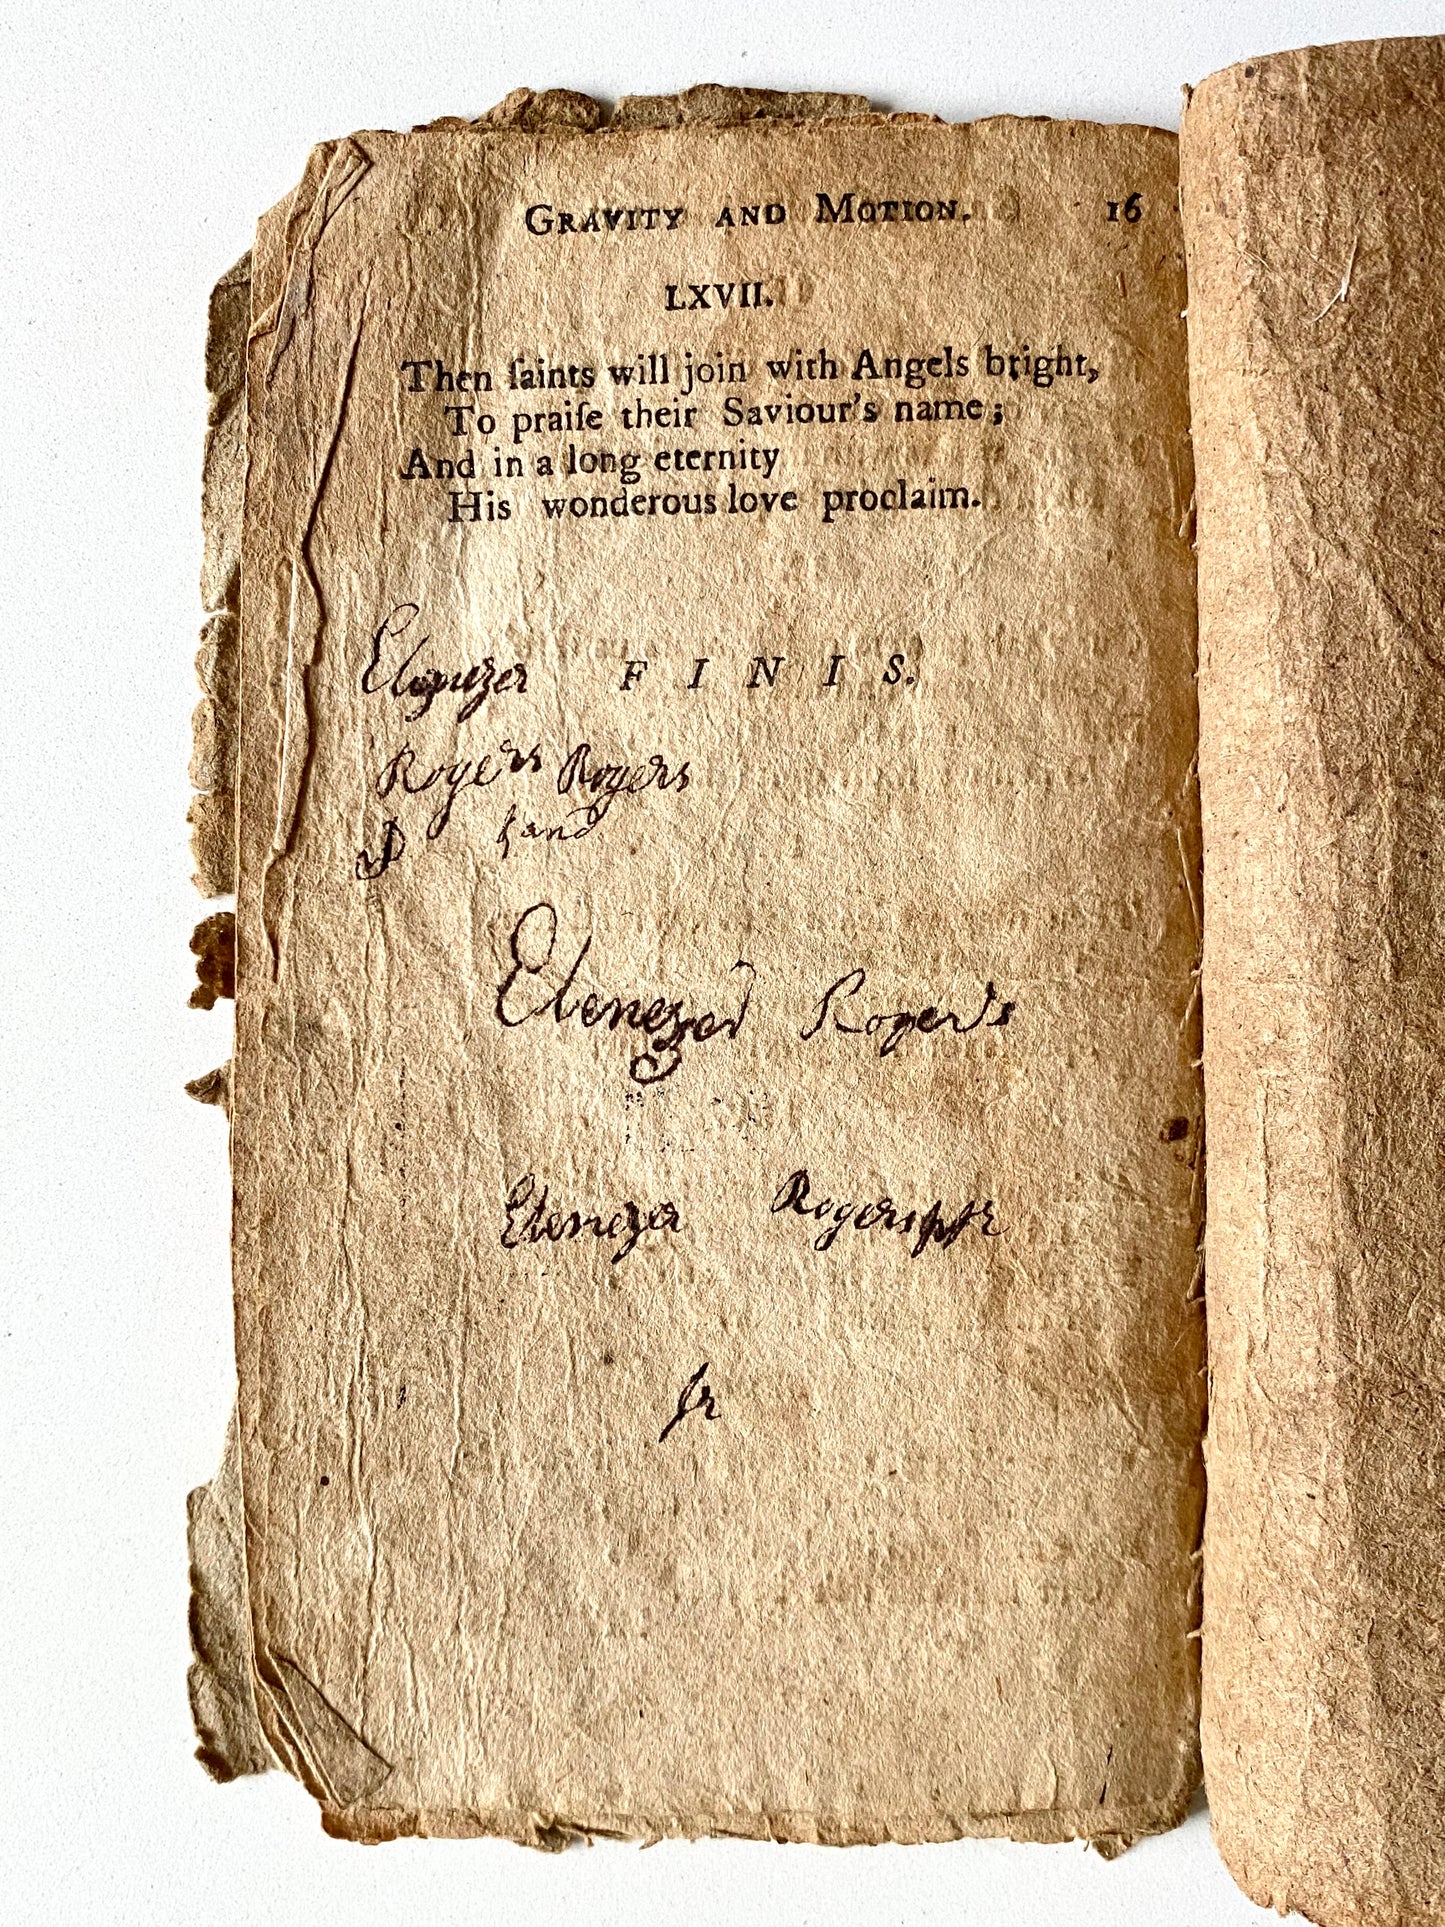 GRAVITY AND MOTION. 16
LXVII.
Then ſaints will join with Angels bright,
To praiſe their Saviour's name;
And in a long eternity
His wonderous love proclaim.
Ebenezer FINIS.
Rogers Rogers
hand
Ebenezer Rogers
Ebenezer Rogers
Jr